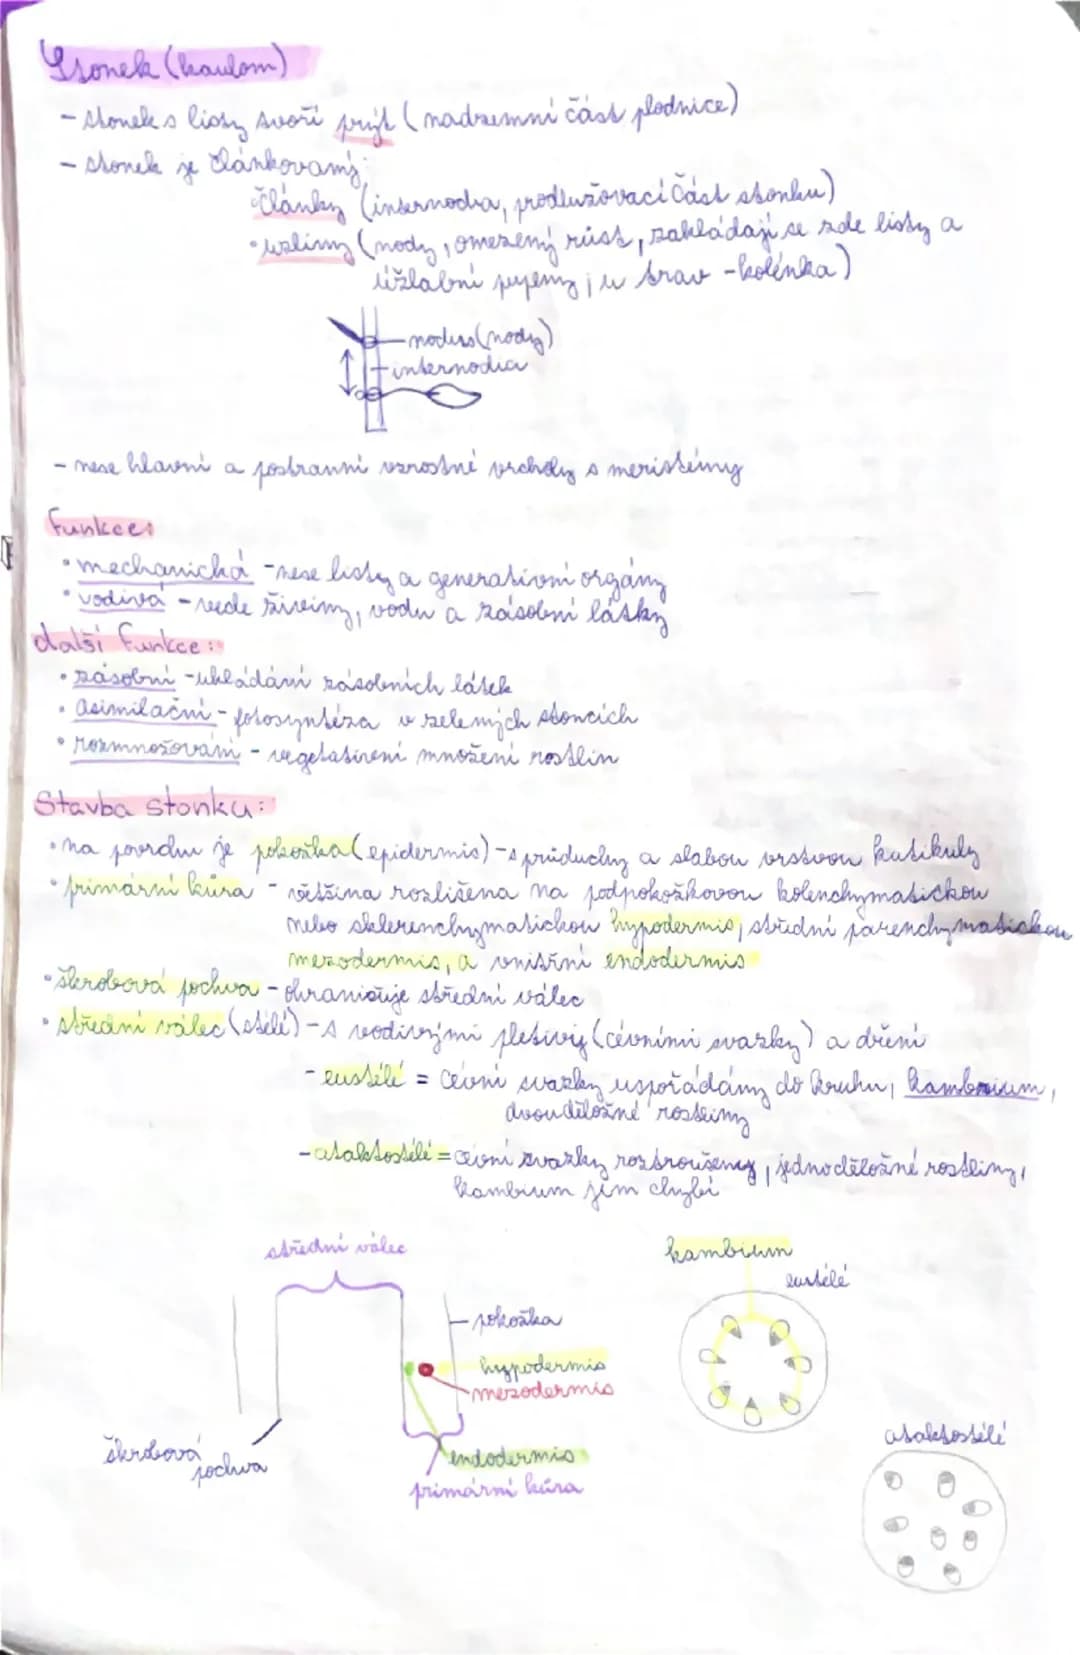 Stonek (kaulom)
- stonek s listy tvoří prýt (nadzemní část plodnice)
- stonek je článkovaný:
• články (internodia, prodlužovací část stonku)
• uzliny (nody, omezený růst, zakládají se zde listy a
úžlabní pupeny, u trav - kolénka)
nodus (nody)
internodia
- nese hlavní a postranní vzrostné vrcholy s meristémy
funkce:
• mechanická - nese listy a generativní orgány
• vodivá - vede živiny, vodu a zásobní látky
další funkce:
• zásobní - ukládání zásobních látek
• asimilační - fotosyntéza v zelených stoncích
• rozmnožování - vegetativní množení rostlin
Stavba stonku:
• na povrchu je pokožka (epidermis) - s průduchy a slabou vrstvou kutikuly
• primární kůra - většina rozlišena na podpokožkovou kolenchymatickou
nebo sklerenchymatickou hypodermis, střední parenchymatickou
mezodermis, a vnitřní endodermis
• škrobová pochva - ohraničuje střední válec
• střední válec (stélé) - s vodivými pletivy (cévními svazky) a dření
- eustélé = cévní svazky uspořádány do kruhu, kambium,
dvouděložné rostliny
- ataktostélé = cévní svazky roztroušeny, jednoděložné rostliny,
kambium jim chybí
střední válec
kambium
eustélé
pokožka
hypodermis
mezodermis
ataktostélé
škrobová
pochva
endodermis
primární kůra